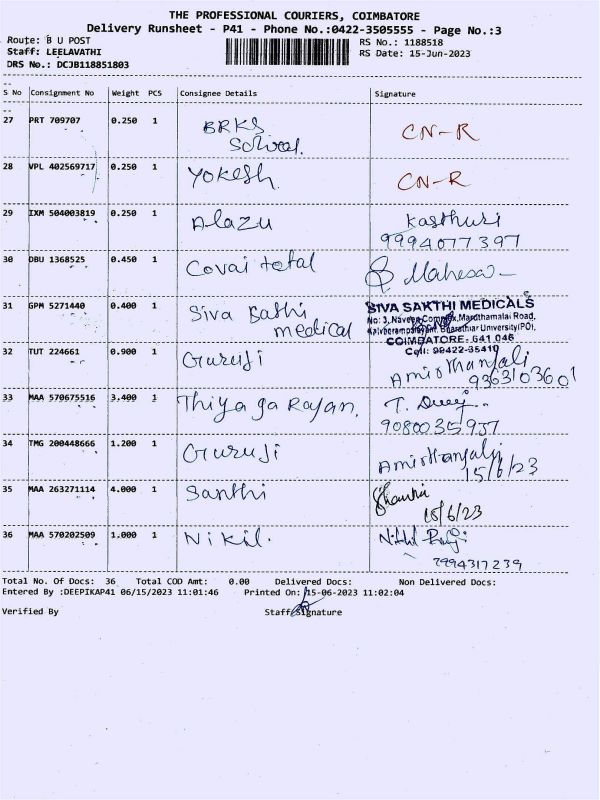 THE PROFESSIONAL COURIERS, COIMBATORE
Delivery Runsheet - P41 - Phone No.:0422-3505555 - Page No.:3
Route: B U POST
RS No.: 1188518
Staff: LEELAVATHI
RS Date: 15-Jun-2023
DRS No.: DCJB118851803
S No Consignment No Weight PCS Consignee Details Signature
27 PRT 709707 0.250 1 BRKS CN-R
School
28 VPL 402569717 0.250 1 Yokesh CN-R
29 IXM 504003819 0.250 1 Alazu Kasthuri
9994077397
30 OBU 1368525 0.450 1 Covai total Mahesa
31 GPM 5271440 0.400 1 Siva Sathi SIVA SAKTHI MEDICALS
medical No: 3, Naveen Complex, Mardthamalai Road,
Kalveerampalayam, Bharathiar University(PO),
COIMBATORE - 641 046
Cell: 99422-35410
32 TUT 224661 0.900 1 Guruji Amirthanjali
9363103601
33 MAA 579675516 3.400 1 Thiyagarajan. T.
9080035937
34 TMG 200448666 1.200 1 Guruji Amirthanjali
15/6/23
35 MAA 263271114 4.000 1 Santhi
15/6/23
36 MAA 570202509 1.000 1 Nikil.
7994317239
Total No. Of Docs: 36 Total COD Amt: 0.00 Delivered Docs: Non Delivered Docs:
Entered By :DEEPIKAP41 06/15/2023 11:01:46 Printed On: 15-06-2023 11:02:04
Verified By Staff Signature